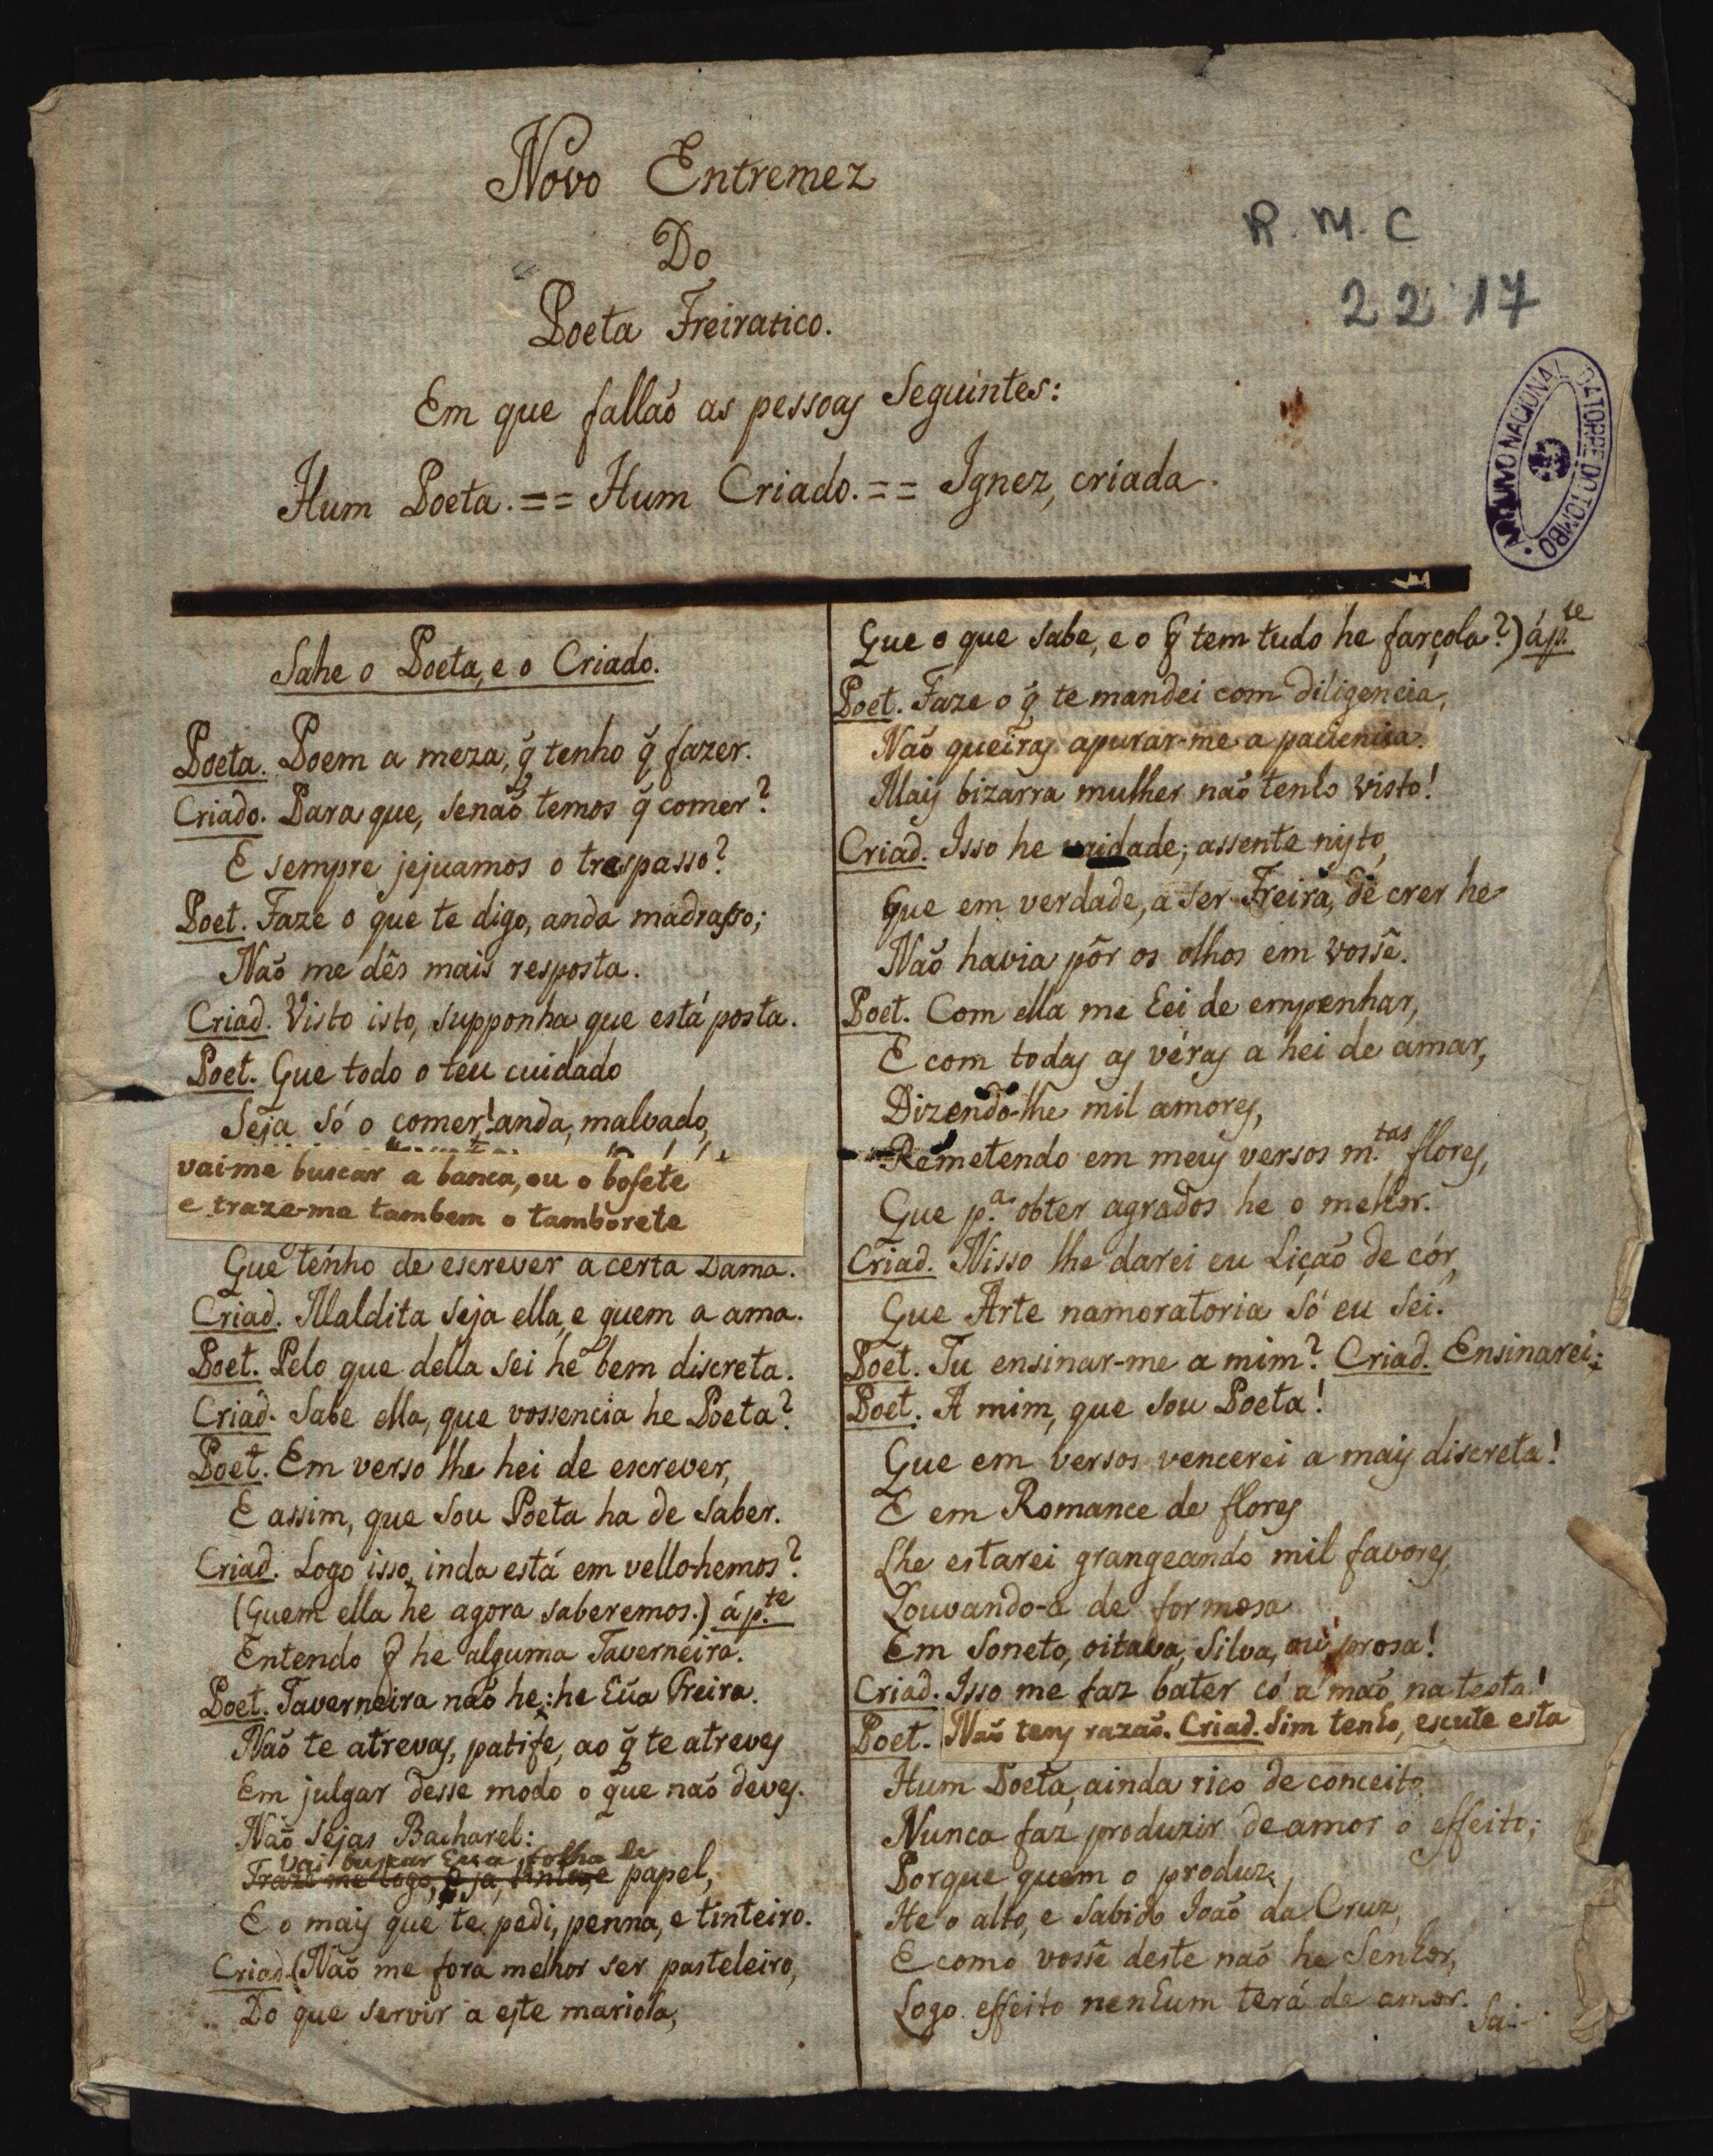 Novo Entremez
Do
Poeta Freiratico.
Em que fallaõ as pessoas Seguintes:
Hum Poeta. == Hum Criado. == Ignez, criada.
R. M. C
22 17
ARQUIVO NACIONAL DA TORRE DO TOMBO
Sahe o Poeta, e o Criado.
Poeta. Poem a meza, q̃ tenho q̃ fazer.
Criado. Para que, senaõ temos q̃ comer?
E sempre jejuamos o trespasso?
Poet. Faze o que te digo, anda madrasso;
Naõ me dês mais resposta.
Criad. Visto isto, supponha que está posta.
Poet. Que todo o teu cuidado
Seja só o comer! anda, malvado,
vai-me buscar a banca, ou o bofete
e traze-me tambem o tamborete
Que tenho de escrever a certa Dama.
Criad. Maldita seja ella, e quem a ama.
Poet. Pelo que della sei he bem discreta.
Criad. Sabe ella, que vossencia he Poeta?
Poet. Em verso lhe hei de escrever,
E assim, que sou Poeta ha de saber.
Criad. Logo isso, inda está em vello-hemos?
(Quem ella he agora saberemos.) áp.te
Entendo q̃ he alguma Taverneira.
Poet. Taverneira naõ he: he hũa Freira.
Naõ te atrevas, patife, ao q̃ te atreves
Em julgar desse modo o que naõ deves.
Naõ sejas Bacharel:
Vai buscar essa folha de
Traze-me logo, e já, tinta, e papel,
E o mais que te pedi, penna, e tinteiro.
Criad. (Naõ me fora melhor ser pasteleiro,
Do que servir a este mariola,
Que o que sabe, e o q̃ tem tudo he farçola?) áp.te
Poet. Faze o q̃ te mandei com diligencia,
Naõ queiras apurar-me a paciencia.
Mais bizarra mulher naõ tenho visto!
Criad. Isso he vaidade; assente nisto,
Que em verdade, a ser Freira, de crer he
Naõ havia pôr os olhos em vossê.
Poet. Com ella me hei de empenhar,
E com todas as véras a hei de amar,
Dizendo-lhe mil amores,
Remetendo em meus versos m.tas flores,
Que p.a obter agrados he o melhor.
Criad. Nisso lhe darei eu Liçaõ de cór,
Que Arte namoratoria só eu sei.
Poet. Tu ensinar-me a mim? Criad. Ensinarei;
Poet. A mim, que sou Poeta!
Que em versos vencerei a mais discreta!
E em Romance de flores
Lhe estarei grangeando mil favores,
Louvando-a de formosa
Em Soneto, oitava, Silva, ou prosa!
Criad. Isso me faz bater có a maõ na testa!
Poet. Naõ tens razaõ. Criad. Sim tenho, escute esta
Hum Poeta, ainda rico de conceito,
Nunca faz produzir de amor o effeito;
Porque quem o produz,
He o alto, e sabido Joaõ da Cruz,
E como vossê deste naõ he Senhor,
Logo effeito nenhum terá de amor.
Sai-